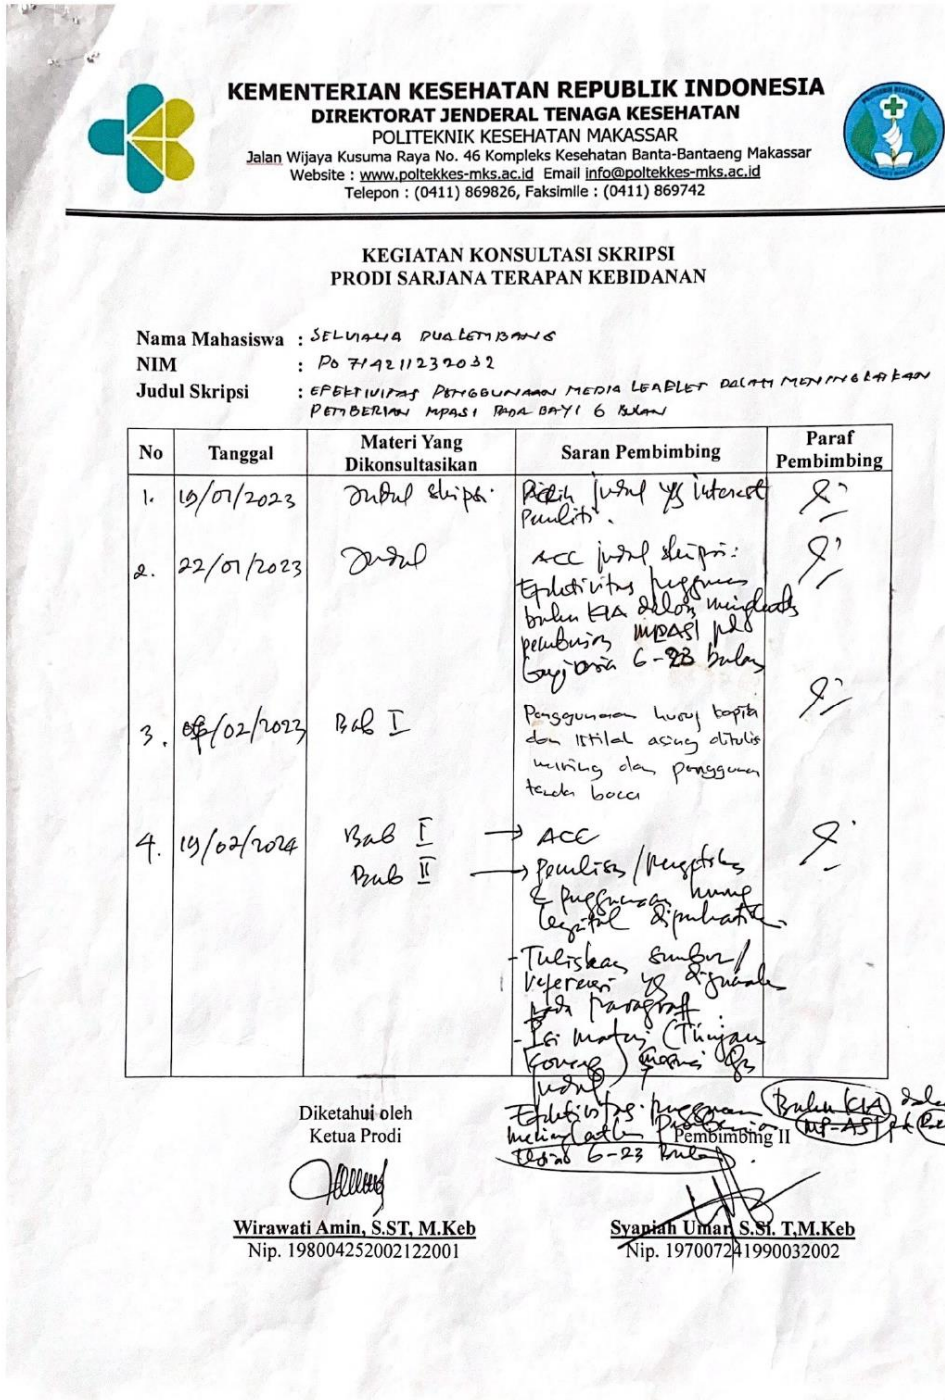 KEMENTERIAN KESEHATAN REPUBLIK INDONESIA
DIREKTORAT JENDERAL TENAGA KESEHATAN
POLITEKNIK KESEHATAN MAKASSAR
Jalan Wijaya Kusuma Raya No. 46 Kompleks Kesehatan Banta-Bantaeng Makassar
Website : www.poltekkes-mks.ac.id Email info@poltekkes-mks.ac.id
Telepon : (0411) 869826, Faksimile : (0411) 869742
KEGIATAN KONSULTASI SKRIPSI
PRODI SARJANA TERAPAN KEBIDANAN
Nama Mahasiswa :
NIM : PO 714211232032
Judul Skripsi : EFEKTIVITAS PENGGUNAAN MEDIA LEAFLET DALAM MENINGKATKAN
PEMBERIAN MPASI PADA BAYI 6 BULAN
No Tanggal Materi Yang Dikonsultasikan Saran Pembimbing Paraf Pembimbing
1. 19/01/2023 Judul skripsi judul yg interest
Peneliti.
2. 22/01/2023 Judul ACC judul skripsi:
Efektivitas
buku KIA dalam
MPASI pd
usia 6-23 bulan
3. /02/2023 Bab I Penggunaan huruf kapital
dan istilah asing ditulis
miring dan penggunaan
tanda baca
4. 19/02/2024 Bab I → ACC
Bab II → Penulisan / pengetikan
& penggunaan huruf
diperhatikan
- Tuliskan sumber/
referensi yg digunakan
pada paragraf
- Isi materi (Tinjauan
judul
Efektivitas penggunaan Buku KIA dalam
MP-ASI pd
6-23 Bulan.
Diketahui oleh
Ketua Prodi
Pembimbing II
Wirawati Amin, S.ST, M.Keb
Nip. 198004252002122001
Syaniah Umar, S.Si. T,M.Keb
Nip. 197007241990032002